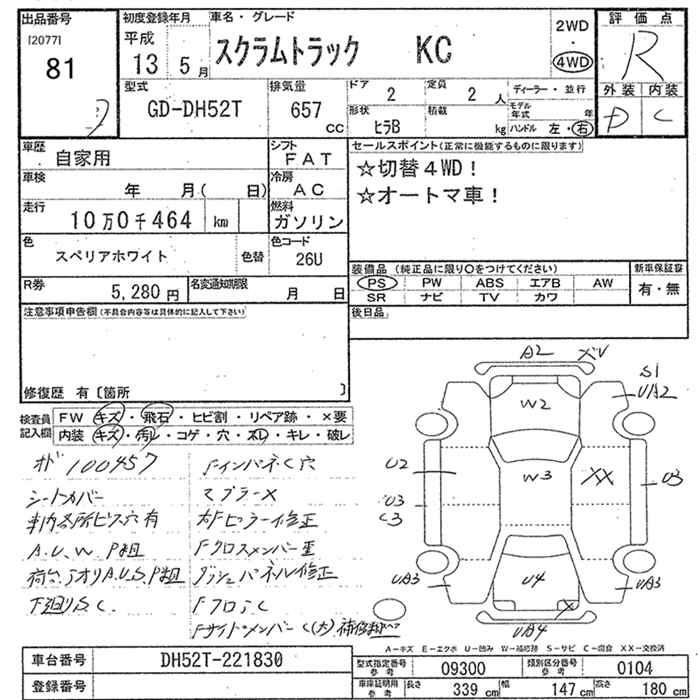 出品番号
[2077]
81
初度登録年月
平成
13 5月
車名・グレード
スクラムトラック KC
2WD
・
4WD
評価点
R
外装 内装
D C
型式
GD-DH52T
排気量
657 CC
ドア 2
定員 2 人
形状 ヒラB
積載 kg
ディーラー・並行
モデル年式 年
ハンドル 左・右
車歴
自家用
シフト
FAT
車検
年 月( 日)
冷房
AC
走行
10万0千464 km
燃料
ガソリン
色
スペリアホワイト
色替
色コード
26U
R券
5,280円
名変通知期限
月 日
セールスポイント(正常に機能するものに限ります)
☆切替4WD!
☆オートマ車!
装備品(純正品に限り○をつけてください)
PS PW ABS エアB AW
SR ナビ TV カワ
新車保証書
有・無
後日品
注意事項申告欄(不具合内容等は具体的に記入して下さい)
修復歴 有〔箇所 〕
検査員記入欄
FW キズ・飛石・ヒビ割・リペア跡・×要
内装 キズ・汚レ・コゲ・穴・スレ・キレ・破レ
オド 100457
シートカバー
車内各所ビス穴有
A.U.W.P無
荷台アオリA.U.S.P無
下廻りS.C.
FインパネC穴
マフラー×
右Fピラー修正
Fクロスメンバー重
ダッシュパネル修正
FフロアC
FサイドメンバーC(大)
A2 XV
S1
UA2
W2
U2
W3
XX
U3
U3
C3
UA3
U4
UA3
X
UA4
A-キズ E-エクボ U-凹み W-補修跡 S-サビ C-腐食 XX-交換済
車台番号
DH52T-221830
登録番号
型式指定番号 参考
09300
類別区分番号 参考
0104
車庫証明用 参考
長さ 339 cm
幅 147 cm
高さ 180 cm